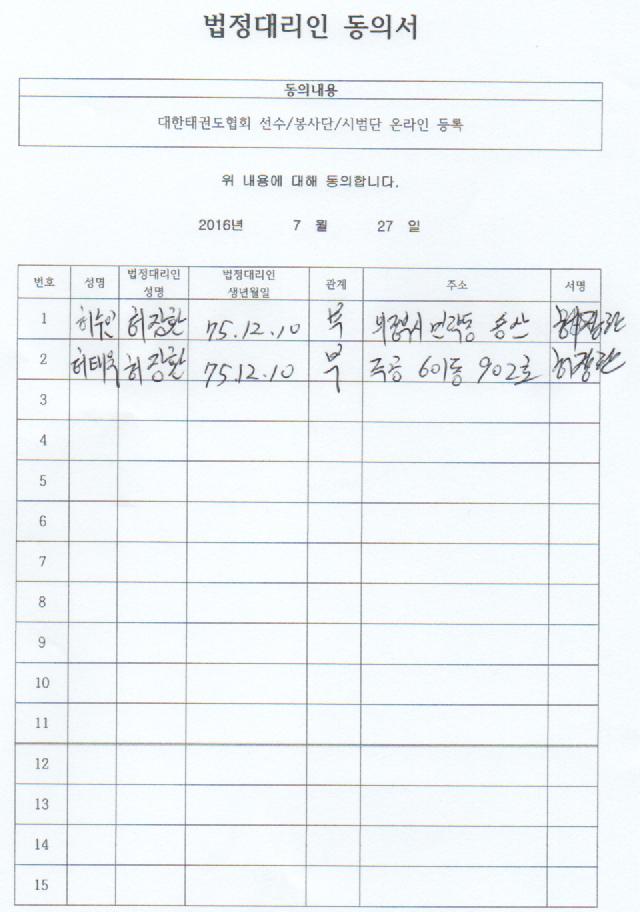 법정대리인 동의서
동의내용
대한태권도협회 선수/봉사단/시범단 온라인 등록
위 내용에 대해 동의합니다.
2016년 7 월 27 일
번호 성명 법정대리인 성명 법정대리인 생년월일 관계 주소 서명
1 허수인 허장환 75.12.10 부 의정부시 민락동 송산
2 허태욱 허장환 75.12.10 부 주공 601동 902호
3
4
5
6
7
8
9
10
11
12
13
14
15